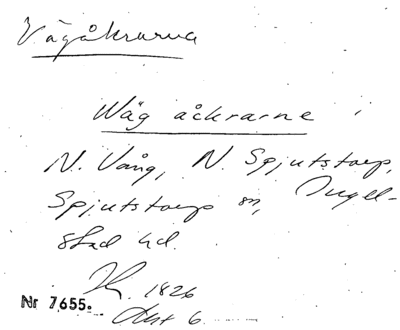 Vägåkrarna
Wäg åckrarne i
N. Vång, N. Spjutstorp,
Spjutstorp sn, Ingel-
stad hd.
1826
Nr 7655. Akt 6